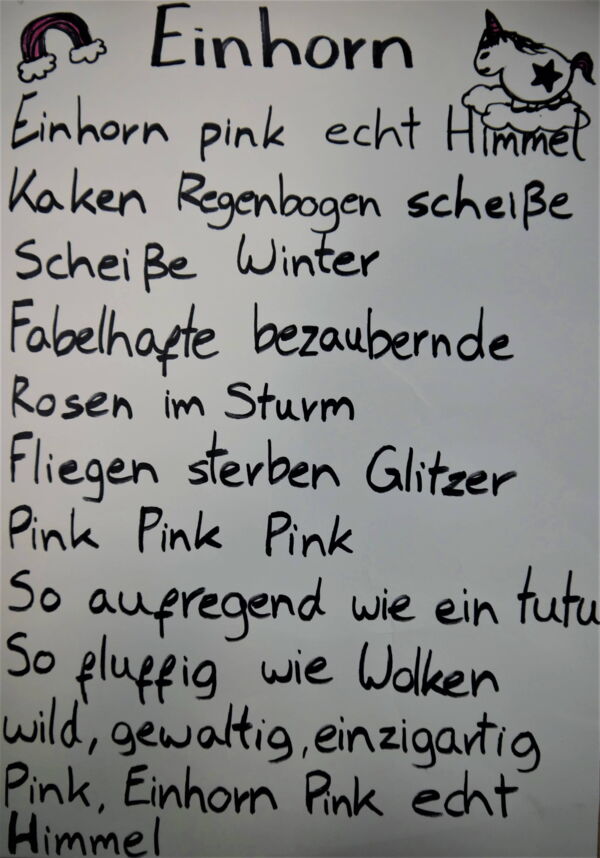 Einhorn
Einhorn pink echt Himmel
Kaken Regenbogen scheiße
Scheiße Winter
Fabelhafte bezaubernde
Rosen im Sturm
Fliegen sterben Glitzer
Pink Pink Pink
So aufregend wie ein tutu
So fluffig wie Wolken
wild, gewaltig, einzigartig
Pink, Einhorn Pink echt
Himmel